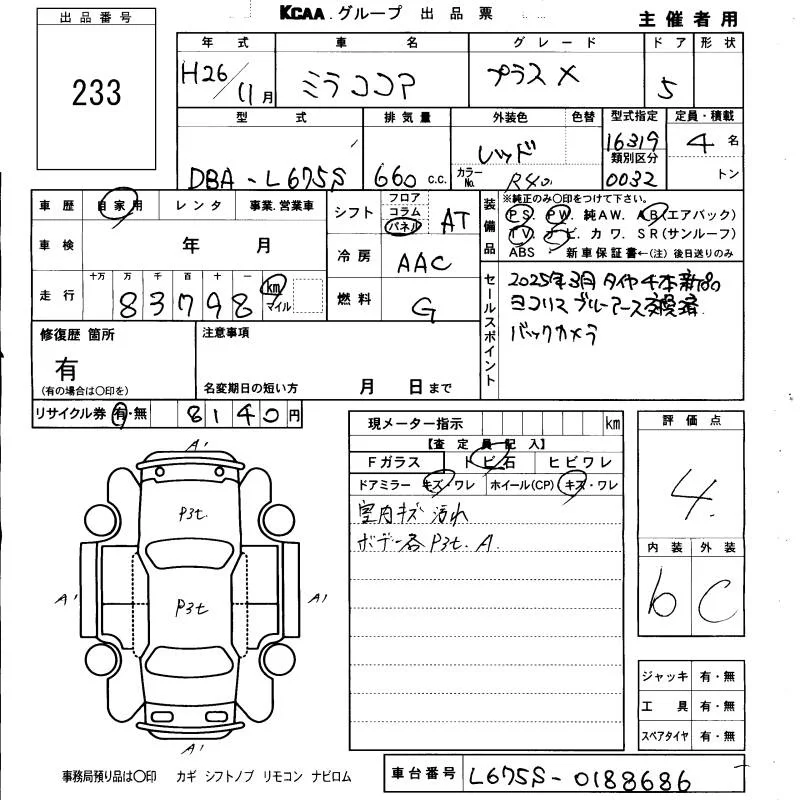 出品番号
233
KCAA.グループ 出品票
主催者用
年式 車名 グレード ドア 形状
H26/11月 ミラココア プラスX 5
型式 排気量 外装色 色替 型式指定 定員・積載
DBA-L675S 660 c.c. レッド 16319 4名
カラーNo. R40 類別区分 0032 トン
車歴 自家用 レンタ 事業.営業車
車検 年 月
走行 十万 万 千 百 十 一
83798 km マイル
シフト フロア コラム パネル AT
冷房 AAC
燃料 G
装備品 ※純正のみ○印をつけて下さい。
PS. PW. 純AW. AB(エアバック)
TV. ナビ. カワ. SR(サンルーフ)
ABS 新車保証書←(注)後日送りのみ
セールスポイント
2025年3月 タイヤ4本新品
ヨコハマ ブルーアース交換済
バックカメラ
修復歴 箇所
有
(有の場合は○印を)
注意事項
名変期日の短い方 月 日まで
リサイクル券 有・無 8140円
現メーター指示 km
【査定員記入】
Fガラス トビ石 ヒビワレ
ドアミラー キズ・ワレ ホイール(CP) キズ・ワレ
室内キズ 汚れ
ボデー各 P3t. A.
評価点
4.
内装 外装
b C
A'
P3t.
A' P3t A'
A'
ジャッキ 有・無
工具 有・無
スペアタイヤ 有・無
事務局預り品は○印 カギ シフトノブ リモコン ナビロム
車台番号 L675S-0188686